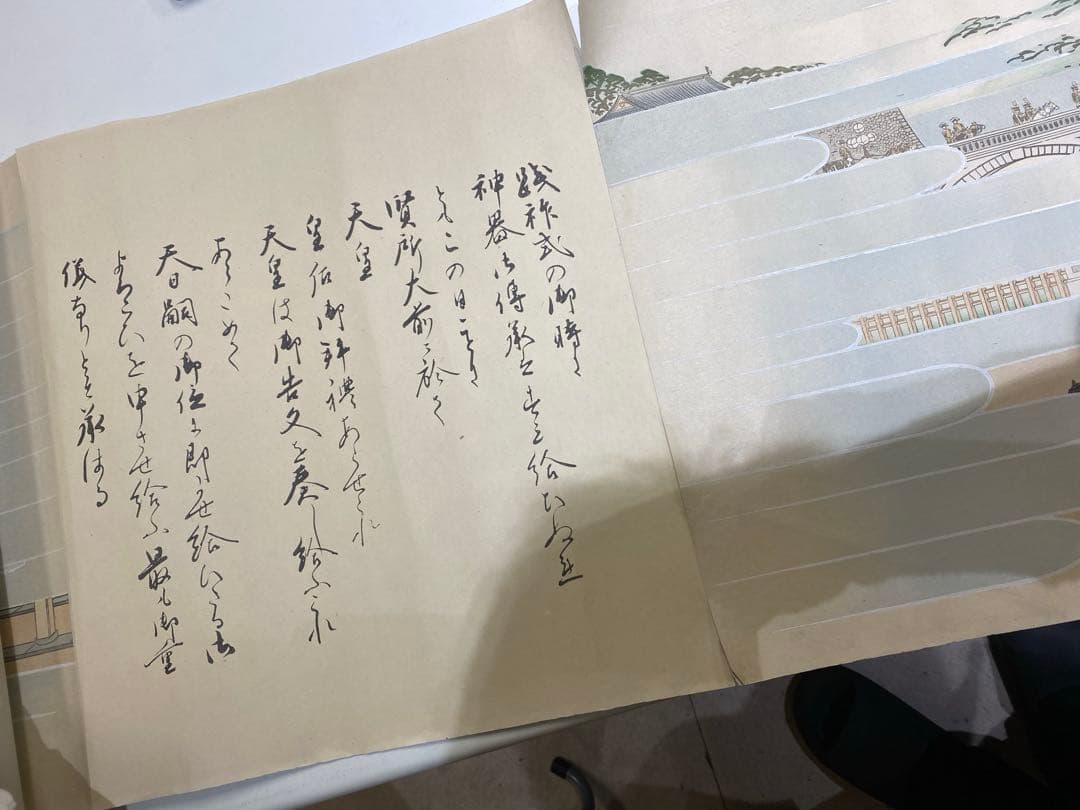 踐祚式の御時に
神器御傳承 給ひぬれ
ともこの日ことさらに
賢所大前に於て
天皇
皇后御拜禮あらせられ
天皇は御告文を奏し給ふこれ
あらためて
天日嗣の御位に即かせ給ひたる御
よろこびを申させ給ふ最も御重
儀なりとぞ承はる